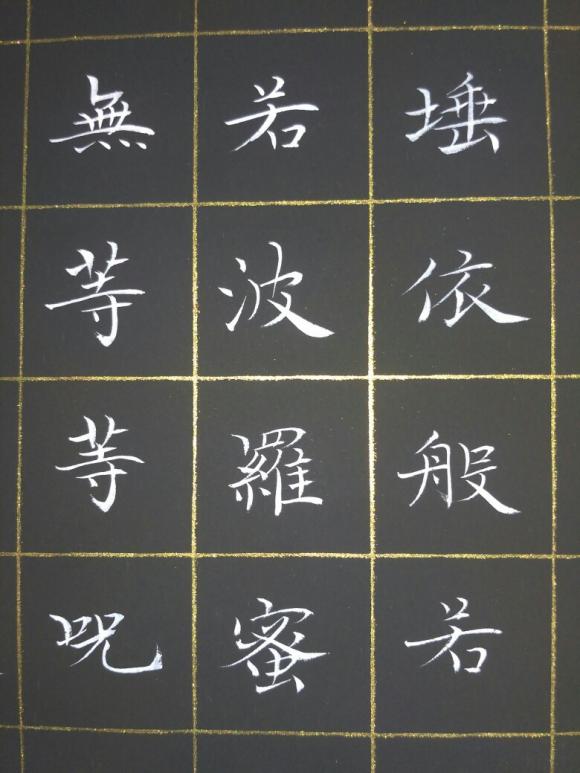 埵依般若
若波羅蜜
無等等呪